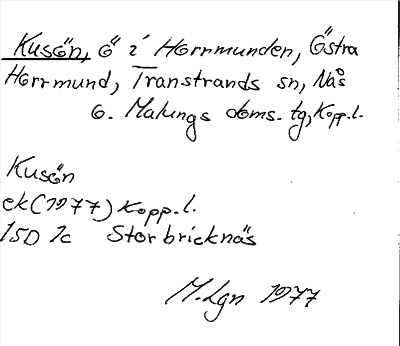 Kusön, ö i Horrmunden, Östra
Horrmund, Transtrands sn, Nås
o. Malungs doms. tg, Kopp. l.
Kusön
ek (1977) Kopp. l.
15D 1c Storbricknäs
M. Lgn 1977